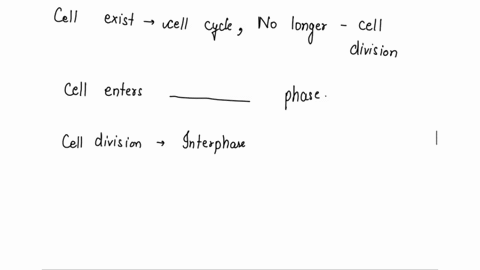 Cell exist → cell cycle, No longer - cell
division
Cell enters ________ phase.
Cell division → Interphase